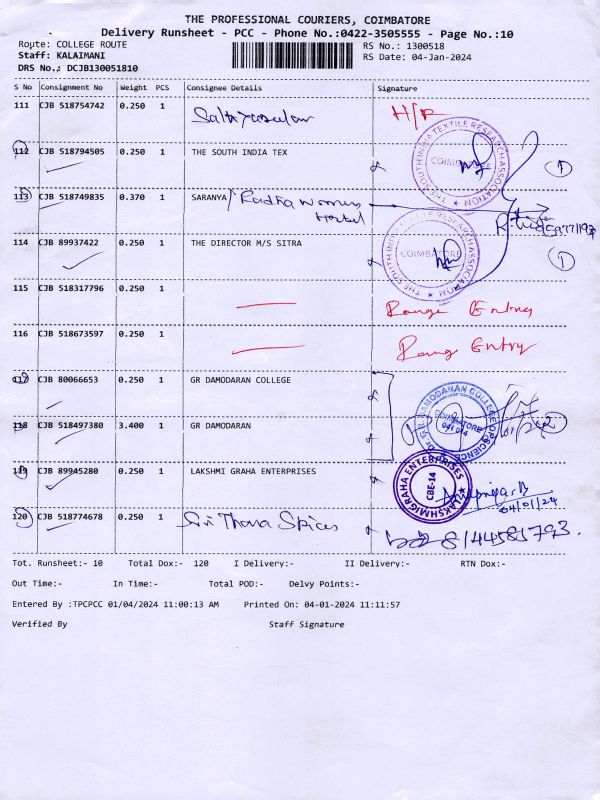 THE PROFESSIONAL COURIERS, COIMBATORE
Delivery Runsheet - PCC - Phone No.:0422-3505555 - Page No.:10
Route: COLLEGE ROUTE
RS No.: 1300518
Staff: KALAIMANI
RS Date: 04-Jan-2024
DRS No.; DCJB130051810
S No Consignment No Weight PCS Consignee Details Signature
111 CJB 518754742 0.250 1
112 CJB 518794505 0.250 1 THE SOUTH INDIA TEX
THE SOUTH INDIA TEXTILE RESEARCH ASSOCIATION
COIMBATORE
1
113 CJB 518749835 0.370 1 SARANYA / Radha Womens
Hostel
114 CJB 89937422 0.250 1 THE DIRECTOR M/S SITRA
THE SOUTH INDIA TEXTILE RESEARCH ASSOCIATION
COIMBATORE
1
115 CJB 518317796 0.250 1
116 CJB 518673597 0.250 1 Entry
117 CJB 80066653 0.250 1 GR DAMODARAN COLLEGE
118 CJB 518497380 3.400 1 GR DAMODARAN
COIMBATORE
641 014
2
119 CJB 89945280 0.250 1 LAKSHMI GRAHA ENTERPRISES
LAKSHMIGRAHA ENTERPRISES
CBE-14
04/01/24
120 CJB 518774678 0.250 1 Sri Thara Spices
8144585793.
Tot. Runsheet:- 10 Total Dox:- 120 I Delivery:- II Delivery:- RTN Dox:-
Out Time:- In Time:- Total POD:- Delvy Points:-
Entered By :TPCPCC 01/04/2024 11:00:13 AM Printed On: 04-01-2024 11:11:57
Verified By Staff Signature